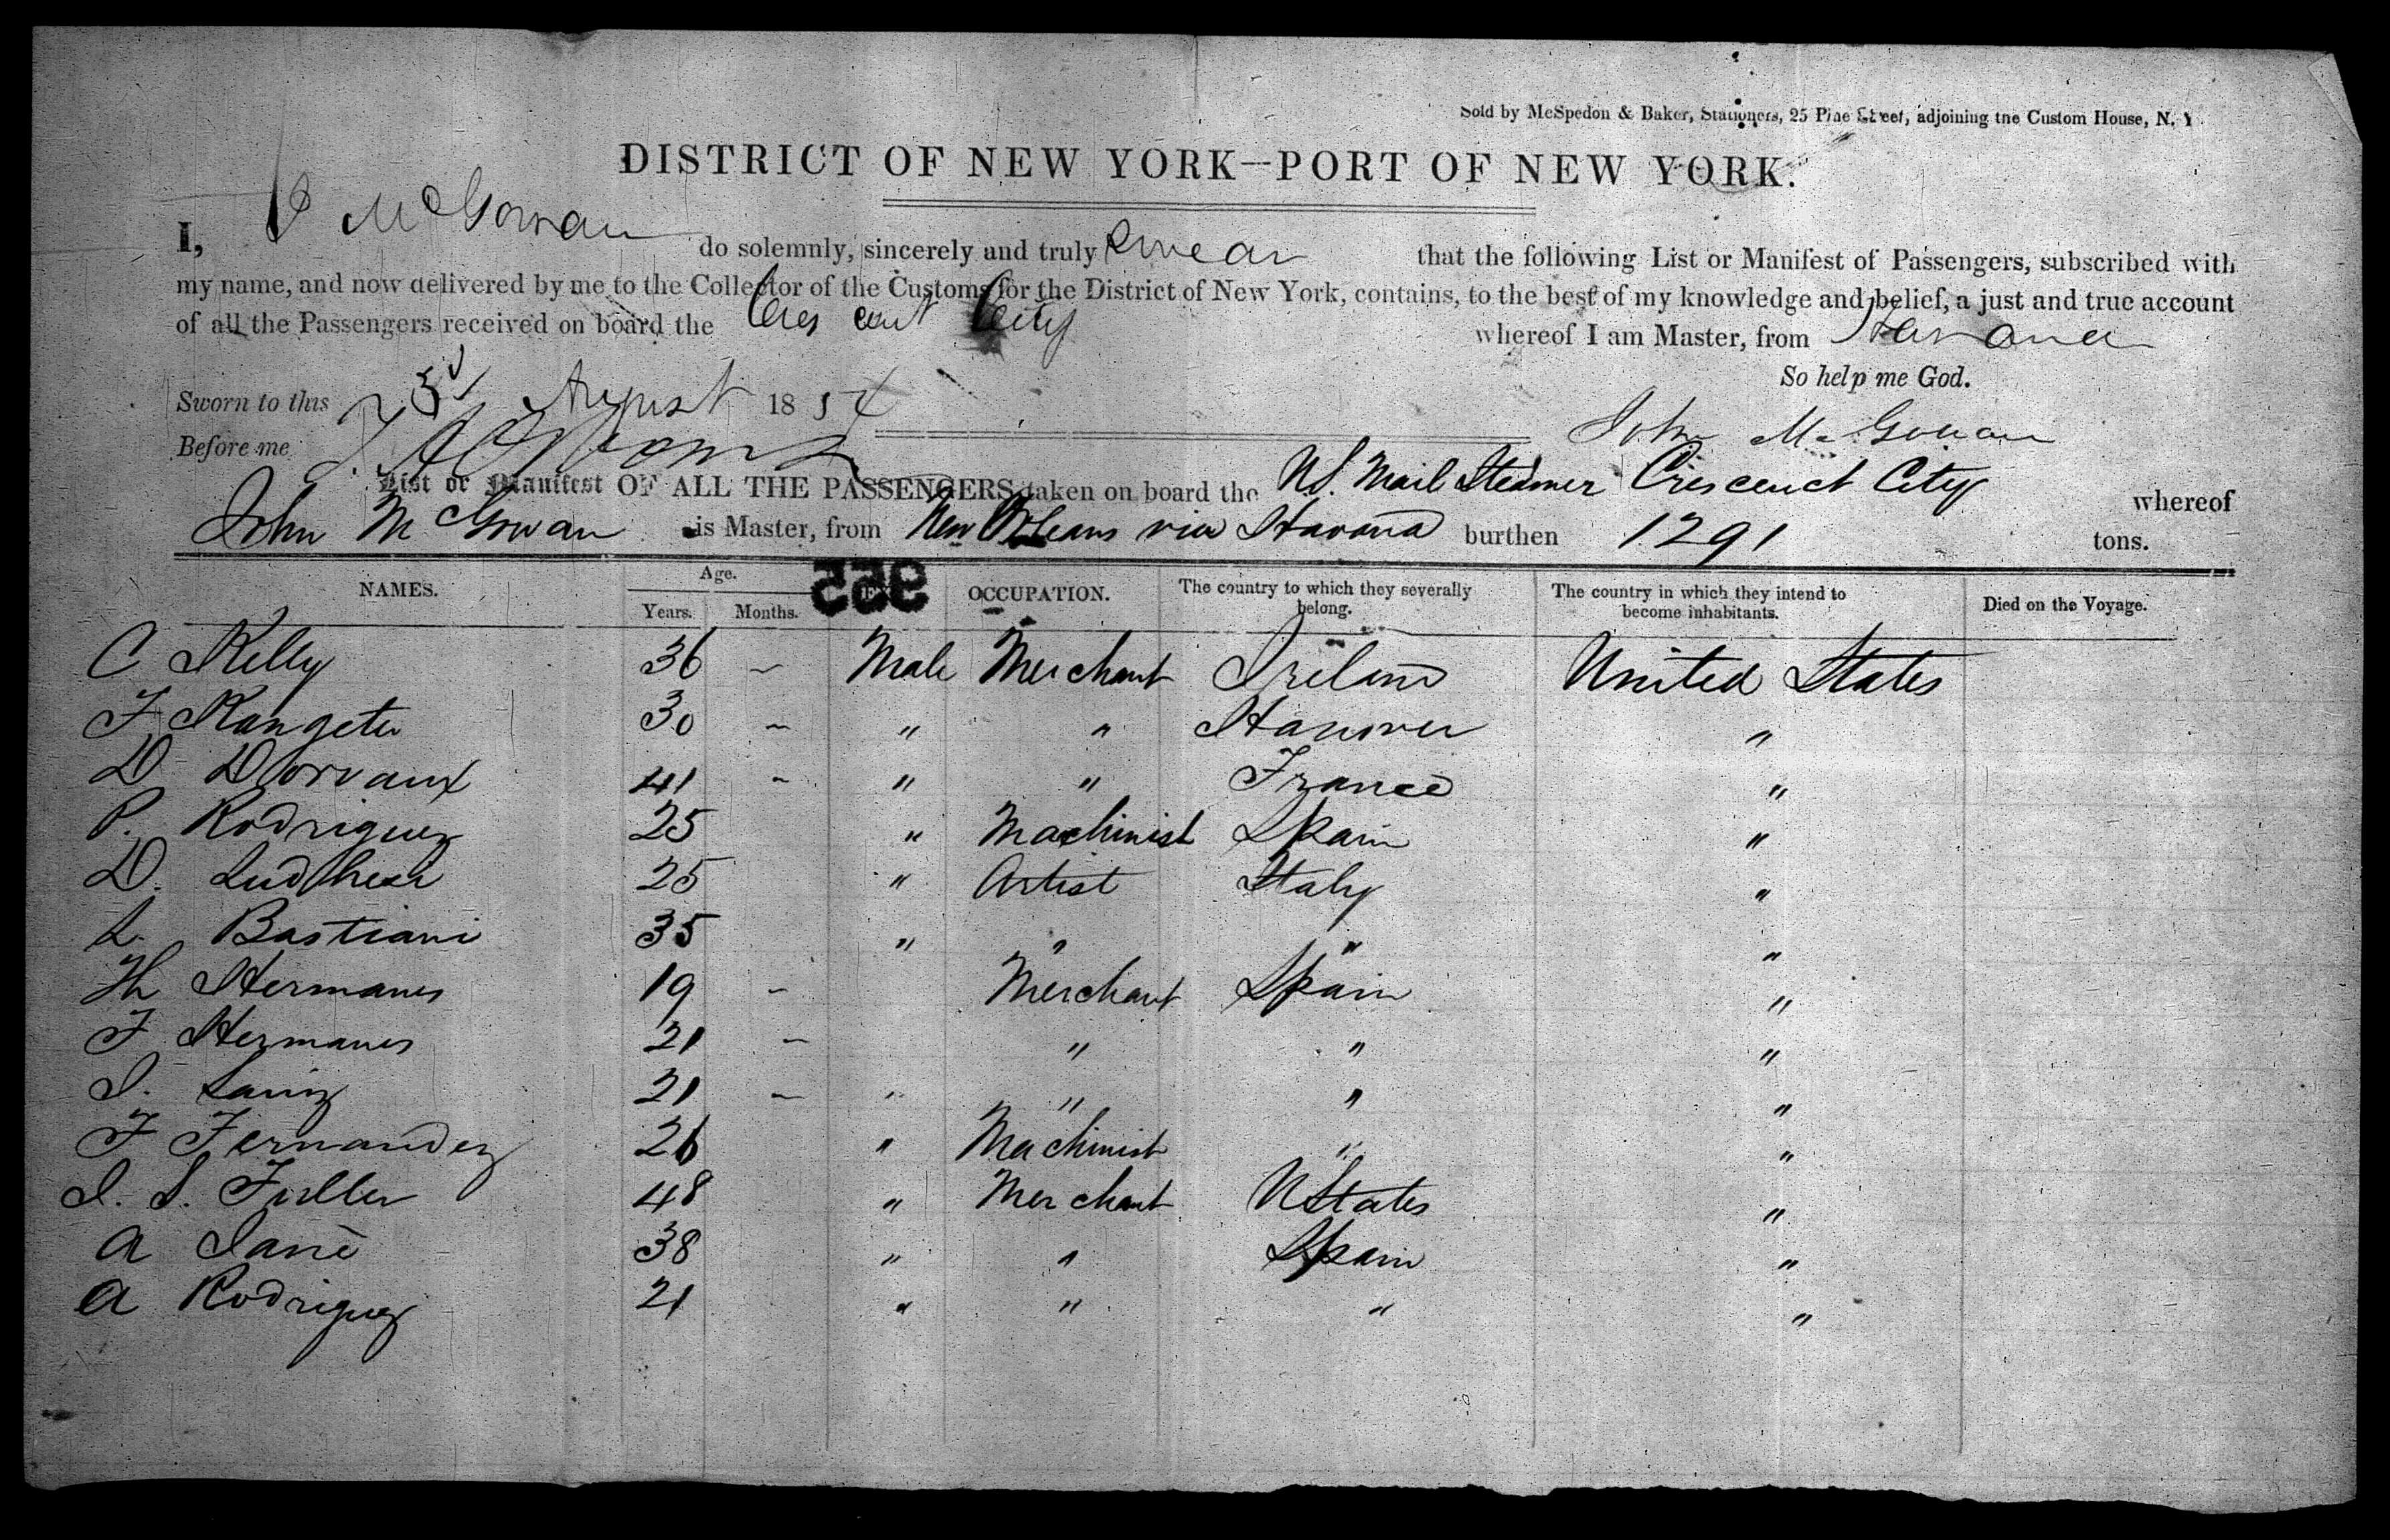 Sold by McSpedon & Baker, Stationers, 25 Pine Street, adjoining the Custom House, N. Y
DISTRICT OF NEW YORK—PORT OF NEW YORK.
I, J McGowan do solemnly, sincerely and truly swear that the following List or Manifest of Passengers, subscribed with
my name, and now delivered by me to the Collector of the Customs for the District of New York, contains, to the best of my knowledge and belief, a just and true account
of all the Passengers received on board the Crescent City whereof I am Master, from Havana
So help me God.
Sworn to this 23d August 1854
John McGowan
Before me
List or Manifest OF ALL THE PASSENGERS taken on board the US. Mail Steamer Crescent City whereof
John McGowan is Master, from New Orleans via Havana burthen 1291 tons.
955
NAMES. Age. OCCUPATION. The country to which they severally belong. The country in which they intend to become inhabitants. Died on the Voyage.
Years. Months.
C Kelly 36 – Male Merchant Ireland United States
F Rangeter 30 – " " Hanover "
D Dorvaux 41 – " " France "
P. Rodriguez 25 " Machinist Spain "
D. 25 " Artist Italy "
L. Bastiani 35 " " " "
H Hermanes 19 – Merchant Spain "
F Hermanes 21 – " " "
J. Lainz 21 – " " " "
F Fernandez 26 " Machinist " "
J. S. Fuller 48 " Merchant UStates "
A Jané 38 " " Spain "
A Rodriguez 21 " " " "